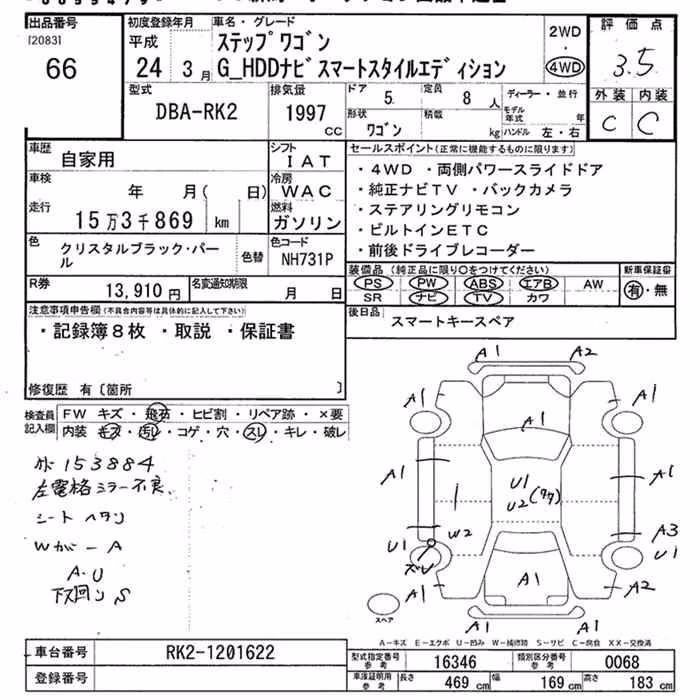 出品番号
[2083]
66
初度登録年月
平成
24 3月
車名・グレード
ステップワゴン
G_HDDナビスマートスタイルエディション
2WD
・
4WD
評価点
3.5
外装 内装
C C
型式
DBA-RK2
排気量
1997 CC
ドア
5
定員
8 人
形状
ワゴン
積載
kg
ディーラー・並行
モデル年式 年
ハンドル 左・右
車歴
自家用
シフト
IAT
車検
年 月( 日)
冷房
WAC
走行
15万3千869 km
燃料
ガソリン
色
クリスタルブラック・パール
色替
色コード
NH731P
セールスポイント(正常に機能するものに限ります)
・4WD ・両側パワースライドドア
・純正ナビTV ・バックカメラ
・ステアリングリモコン
・ビルトインETC
・前後ドライブレコーダー
R券
13,910円
名変通知期限
月 日
装備品 (純正品に限り○をつけてください)
PS PW ABS エアB AW
SR ナビ TV カワ
新車保証書
有・無
注意事項申告欄(不具合内容等は具体的に記入して下さい)
・記録簿8枚 ・取説 ・保証書
修復歴 有〔箇所 〕
後日品
スマートキースペア
検査員記入欄
FW キズ・飛石・ヒビ割・リペア跡・×要
内装 キズ・汚レ・コゲ・穴・スレ・キレ・破レ
153884
左電格ミラー不良
シートヘタリ
Wガー A
A.U
下回りS
A1 A2
A1 A1
A1
A1 A1
U1
U2
W2
U1 A3
U1
ズレ
A1
A1 A2
A1 A1
スペア
A-キズ E-エクボ U-凹み W-補修跡 S-サビ C-腐食 XX-交換済
車台番号
RK2-1201622
登録番号
型式指定番号
参考
16346
類別区分番号
参考
0068
車庫証明用
参考
長さ
469 cm
幅
169 cm
高さ
183 cm